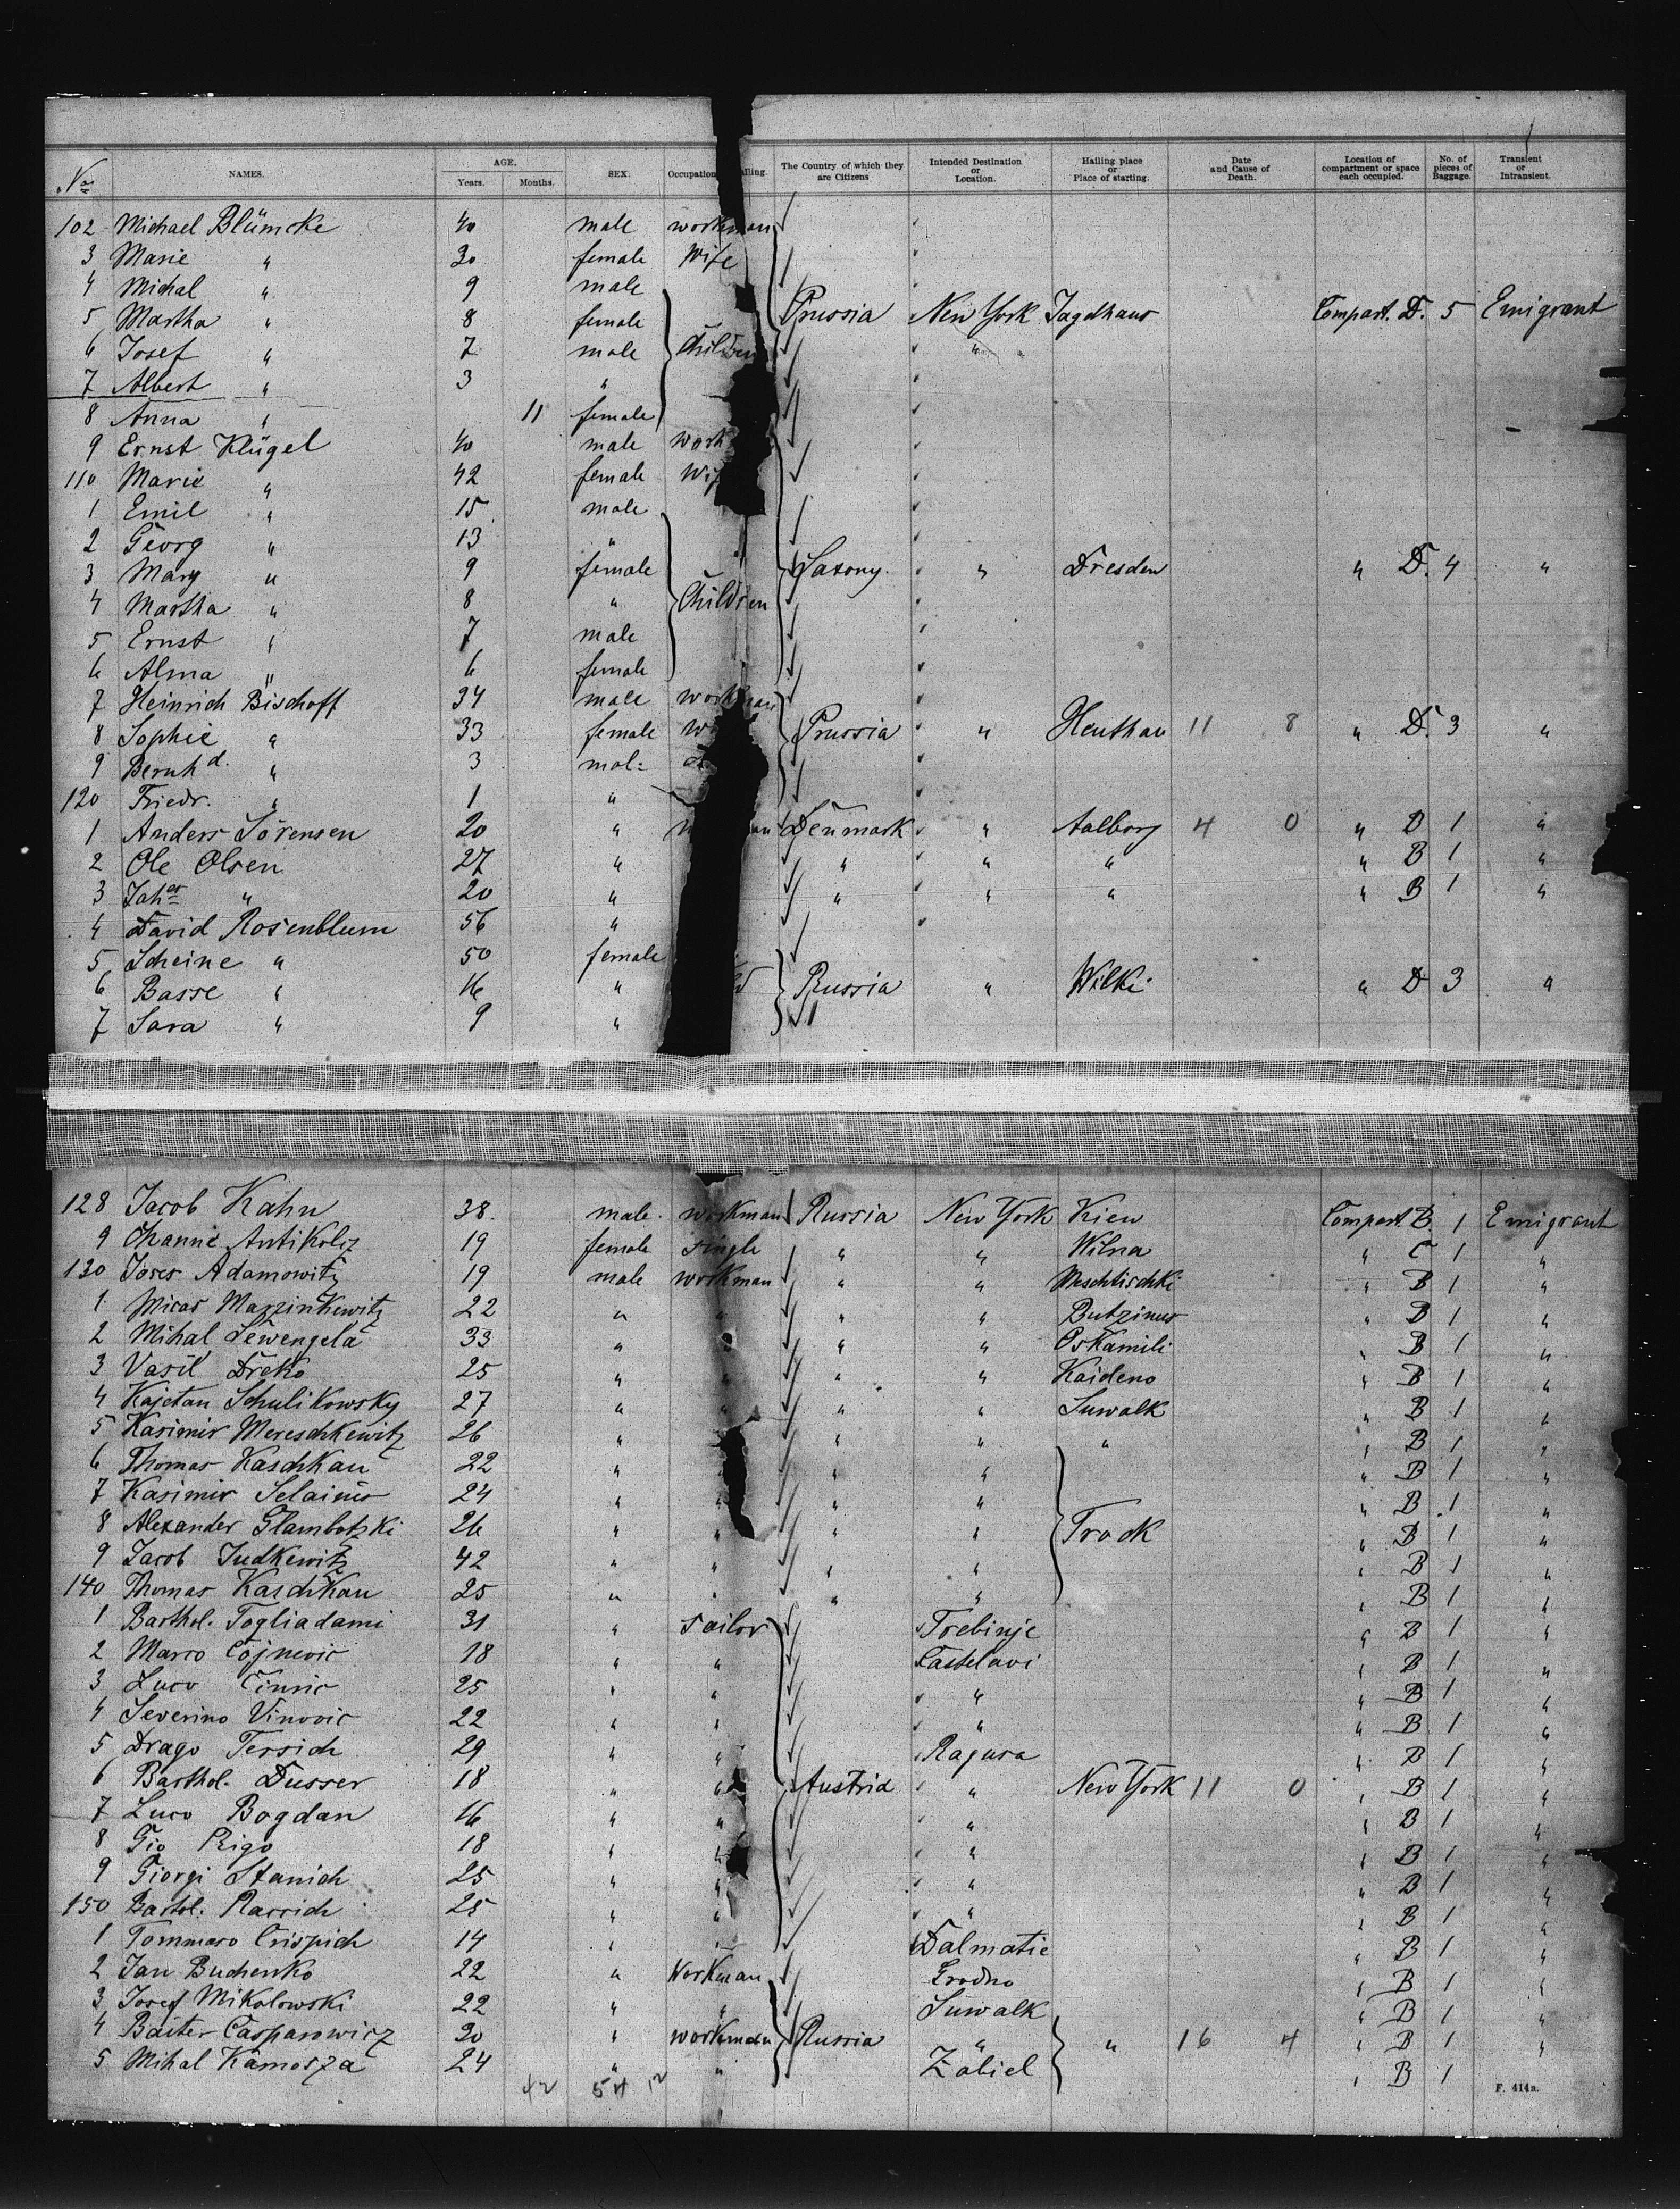 No. NAMES. AGE. Years. Months. SEX. Occupation Calling. The Country of which they are Citizens Intended Destination or Location. Hailing place or Place of starting. Date and Cause of Death. Location of compartment or space each occupied. No. of pieces of Baggage. Transient or Intransient.
102 Michael Blümcke 40 male workman
3 Marie " 30 female Wife
4 Michal " 9 male
5 Martha " 8 female Prussia New York Jagdhaus Compart. D. 5 Emigrant
6 Josef " 7 male Children "
7 Albert " 3 "
8 Anna " 11 female
9 Ernst Klügel 40 male work
110 Marie " 42 female Wif
1 Emil " 15 male
2 Georg " 13 "
3 Mary " 9 female Saxony " Dresden " D. 4 "
4 Martha " 8 " Children
5 Ernst " 7 male
6 Alma " 6 female
7 Heinrich Bischoff 34 male workman
8 Sophie " 33 female w Prussia " Henthau 11 8 " D. 3 "
9 Bernhd. " 3 mal:
120 Friedr. " 1 "
1 Anders Sörensen 20 " Denmark " Aalborg 4 0 " D 1 "
2 Ole Olsen 27 " " " " " B 1 "
3 Johes " 20 " " " " " B 1 "
4 David Rosenblum 56 "
5 Scheine " 50 female
6 Basse " 16 " Russia " Wilki " D 3 "
7 Sara " 9 "
128 Jacob Kahn 38 male workman Russia New York Kiew Compart. B 1 Emigrant
9 Channe Antikolz 19 female single " " Wilna " C 1 "
130 Joses Adamowitz 19 male workman " " Meschtischki " B 1 "
1 Micas Marzinkewitz 22 " " " " Butzinus " B 1 "
2 Mihal Lewengela 33 " " " " Oskamili " B 1 "
3 Vasil Dreko 25 " " " " Kaideno " B 1 "
4 Kajetan Schulikowsky 27 " " " " Suwalk " B 1 "
5 Kasimir Mereschkewitz 26 " " " " " B 1 "
6 Thomas Kaschkau 22 " " " " " B 1 "
7 Kasimir Selainis 24 " " " " " B 1 "
8 Alexander Glambotzki 26 " " " " Trock " B 1 "
9 Jacob Judkewitz 42 " " " " " B 1 "
140 Thomas Kaschkau 25 " " " " " B 1 "
1 Barthol. Togliadami 31 " sailor Trebinje " B 1 "
2 Marco Cojnevic 18 " " Castelavi " B 1 "
3 Luco Cinric 25 " " " " B 1 "
4 Severino Vinovic 22 " " " " B 1 "
5 Drago Tersich 29 " " Ragusa " B 1 "
6 Barthol. Dusser 18 " " Austria " New York 11 0 " B 1 "
7 Luco Bogdan 16 " " " " B 1 "
8 Gio Rigo 18 " " " " B 1 "
9 Giorgi Stanich 25 " " " " B 1 "
150 Bartol. Racrich 25 " " " " B 1 "
1 Tommaso Crispich 14 " " Dalmatie " B 1 "
2 Jan Buchenko 22 " Workman Grodno " B 1 "
3 Josef Mikolowski 22 " " Suwalk " B 1 "
4 Baiter Casparowicz 30 " workman Russia " " 16 4 " B 1 "
5 Mihal Kamosza 24 " " Zabiel " B 1
42 54 12
F. 414a.